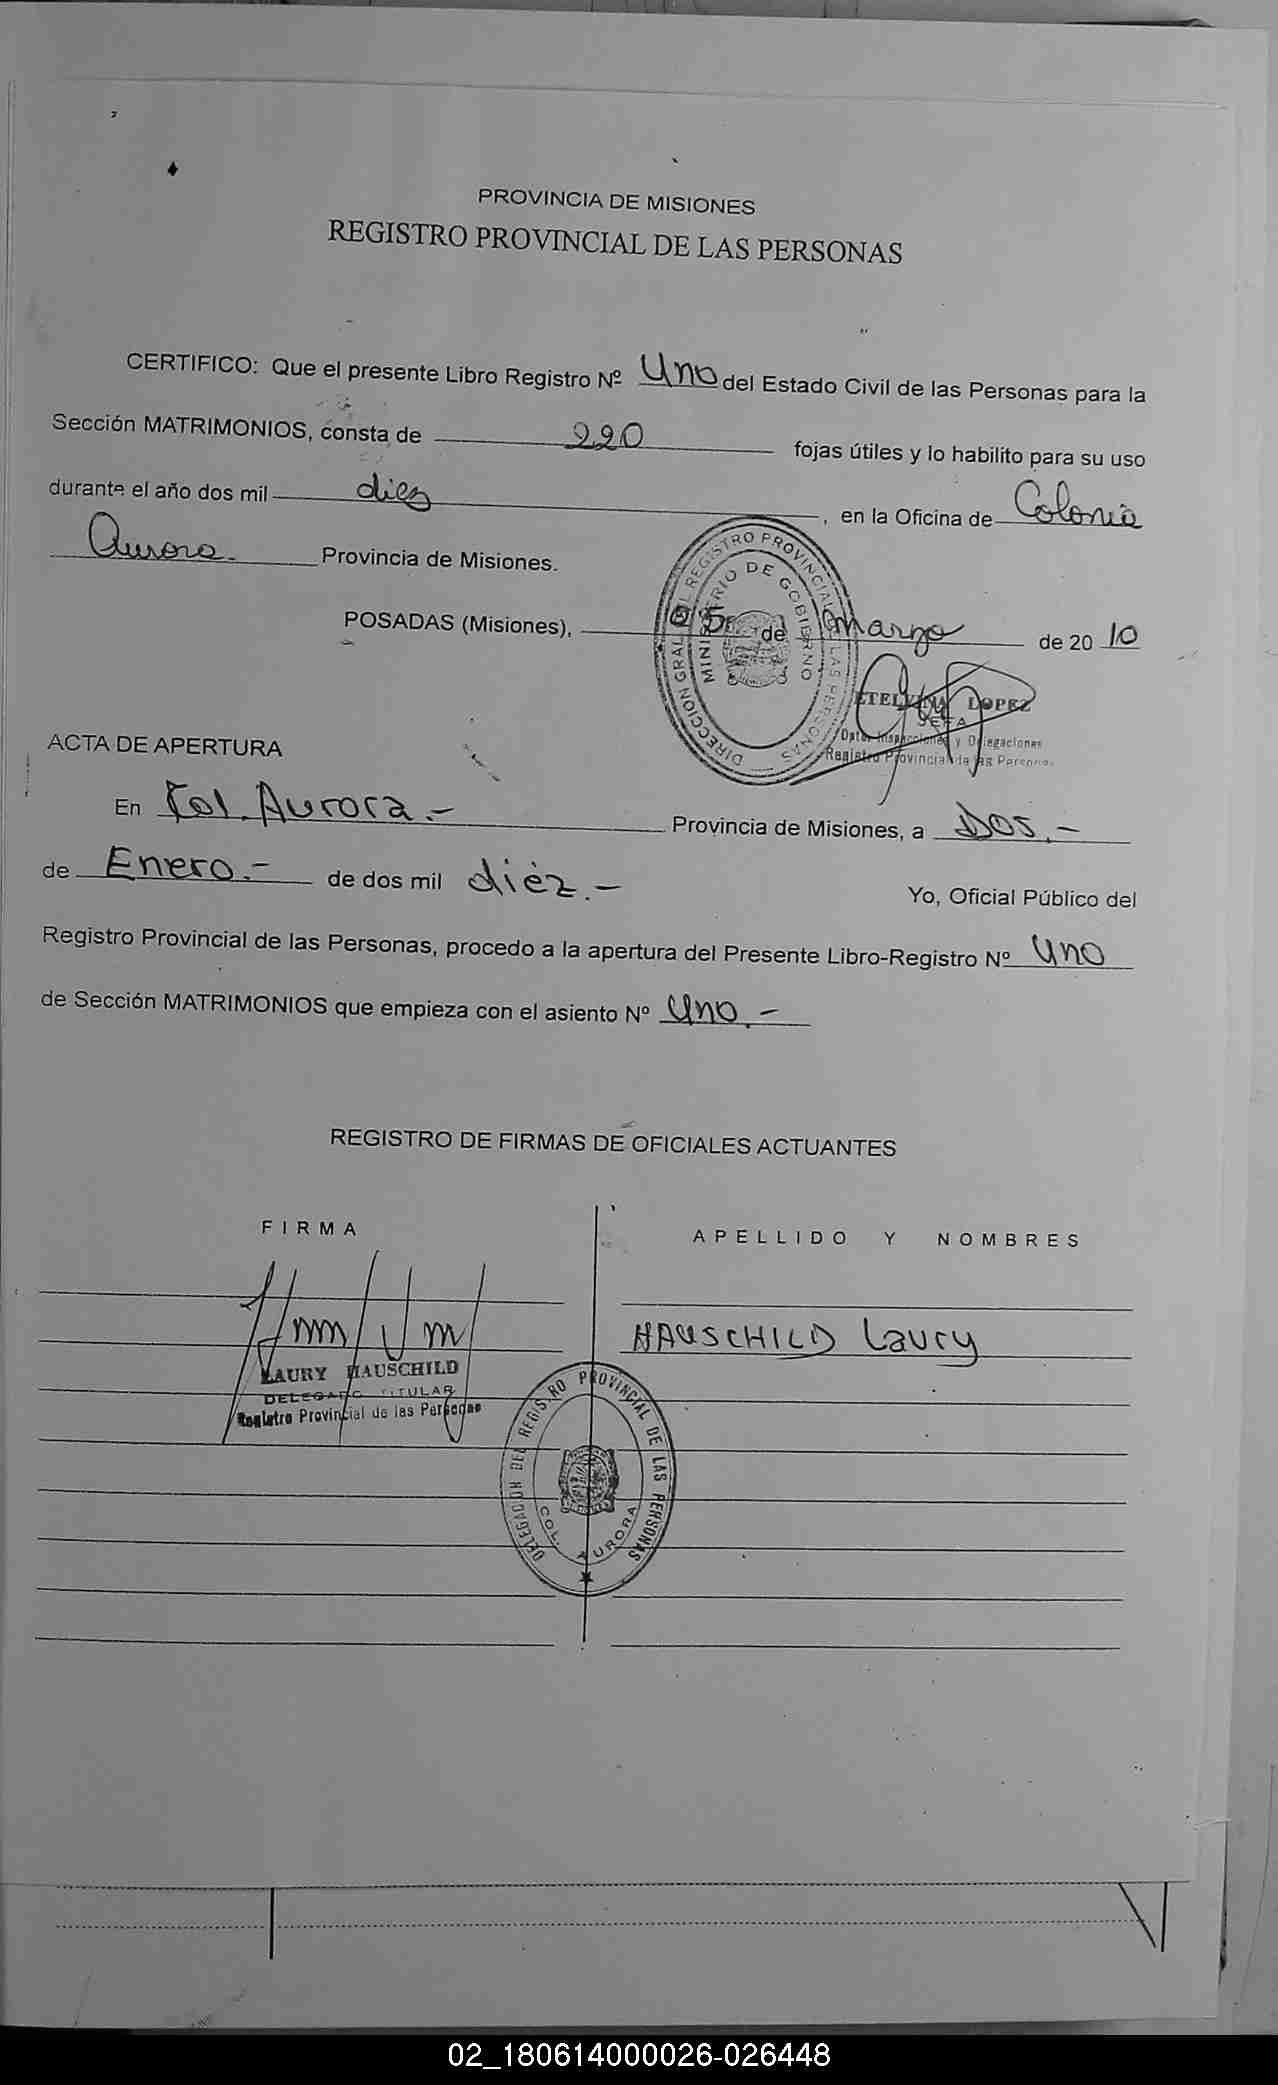 PROVINCIA DE MISIONES
REGISTRO PROVINCIAL DE LAS PERSONAS
CERTIFICO: Que el presente Libro Registro Nº Uno del Estado Civil de las Personas para la
Sección MATRIMONIOS, consta de 220 fojas útiles y lo habilito para su uso
durante el año dos mil diez, en la Oficina de Colonia
Aurora. Provincia de Misiones.
POSADAS (Misiones), 05 de marzo de 2010
DIRECCION GRAL. DEL REGISTRO PROVINCIAL DE LAS PERSONAS
MINISTERIO DE GOBIERNO
ETELVINA LOPEZ
JEFA
Dpto. Inspecciones y Delegaciones
Registro Provincial de las Personas
ACTA DE APERTURA
En Col. Aurora.- Provincia de Misiones, a Dos.-
de Enero.- de dos mil diéz.- Yo, Oficial Público del
Registro Provincial de las Personas, procedo a la apertura del Presente Libro-Registro Nº Uno
de Sección MATRIMONIOS que empieza con el asiento Nº Uno.-
REGISTRO DE FIRMAS DE OFICIALES ACTUANTES
FIRMA APELLIDO Y NOMBRES
HAUSCHILD Laury
LAURY HAUSCHILD
DELEGADO TITULAR
Registro Provincial de las Personas
DELEGACION DEL REGISTRO PROVINCIAL DE LAS PERSONAS
COL. AURORA
02_180614000026-026448